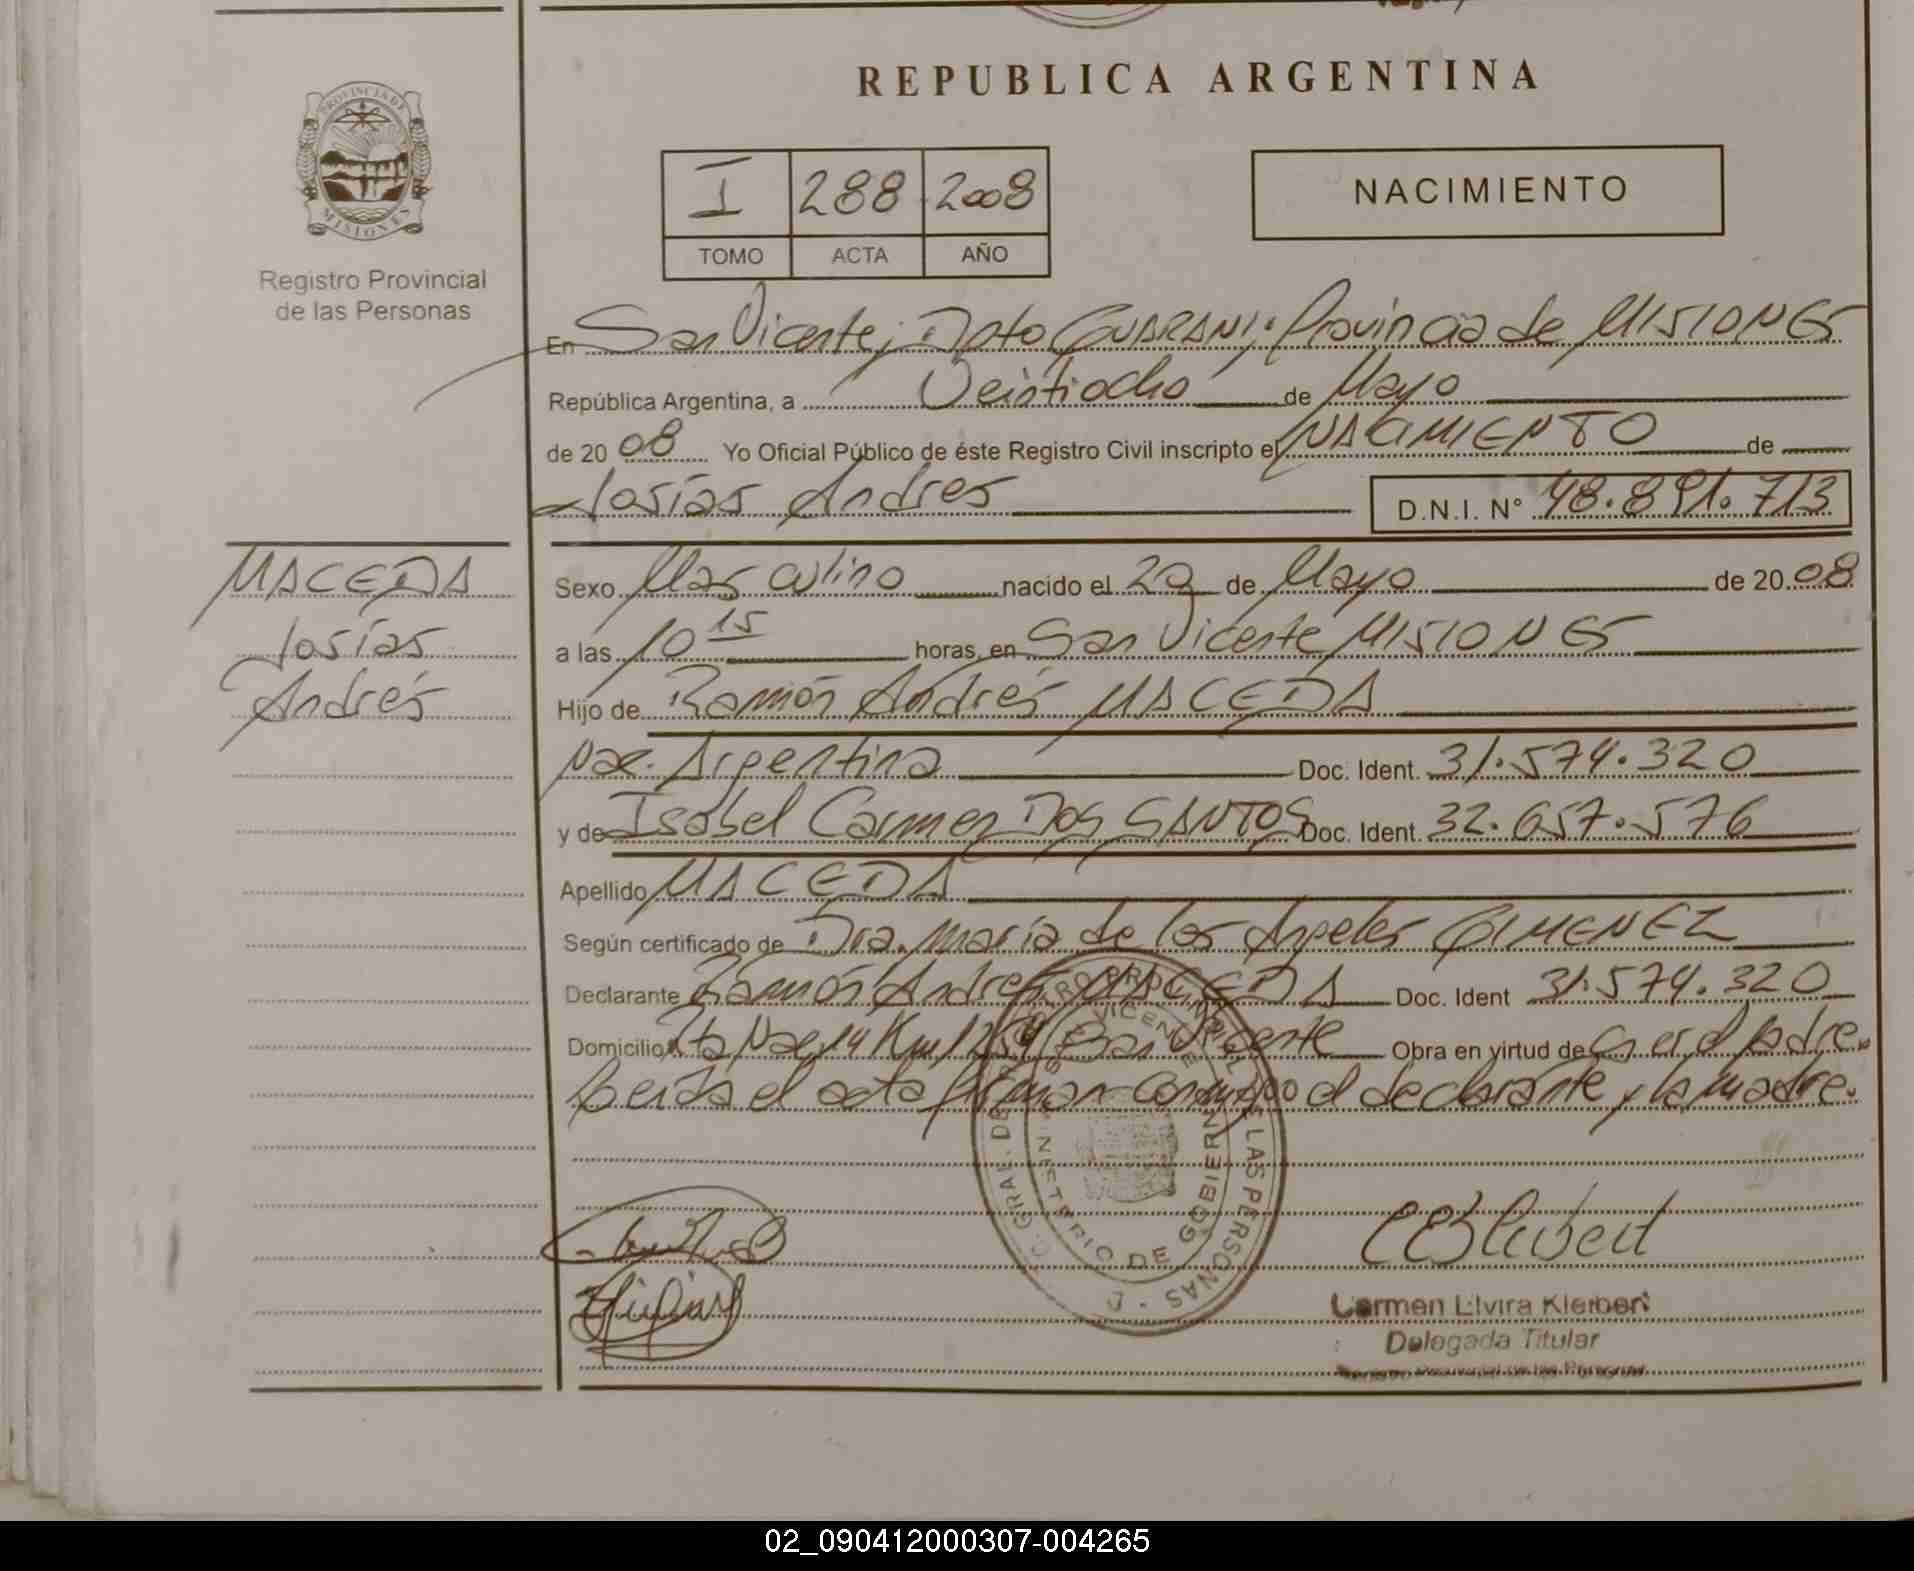 REPUBLICA ARGENTINA
PROVINCIA DE
MISIONES
Registro Provincial
de las Personas
I 288 2008
TOMO ACTA AÑO
NACIMIENTO
En San Vicente, Dpto GUARANI, Provincia de MISIONES
República Argentina, a Veintiocho de Mayo
de 2008 Yo Oficial Público de éste Registro Civil inscripto el NACIMIENTO de
Josías Andres D.N.I. Nº 48.891.713
MACEDA
Josías
Andrés
Sexo Masculino nacido el 20 de Mayo de 2008
a las 10 15 horas, en San Vicente MISIONES
Hijo de Ramón Andrés MACEDA
Nac. Argentina Doc. Ident. 31.574.320
y de Isabel Carmen DOS SANTOS Doc. Ident. 32.657.576
Apellido MACEDA
Según certificado de Dra. María de los Angeles GIMENEZ
Declarante Ramón Andrés MACEDA Doc. Ident 31.574.320
Domicilio Rta Nac 14 Km San Vicente Obra en virtud de ser el Padre.
Leída el acta firman conmigo el declarante y la madre.
SAN VICENTE
MINISTERIO DE GOBIERNO
DE LAS PERSONAS
Carmen Elvira Kleibert
Delegada Titular
Registro Provincial de las Personas
02_090412000307-004265